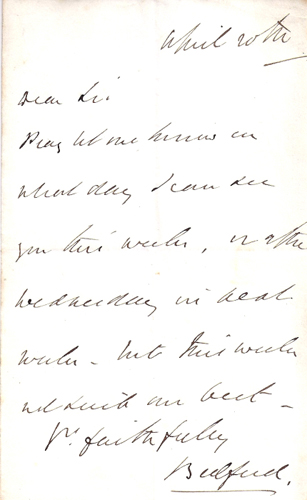 April 20th.
Dear Sir
Pray let me know on
what day I can see
you this week, or
Wednesday in next
week - but this week
wd suit me best -
Yrs. faithfully
Bedford.